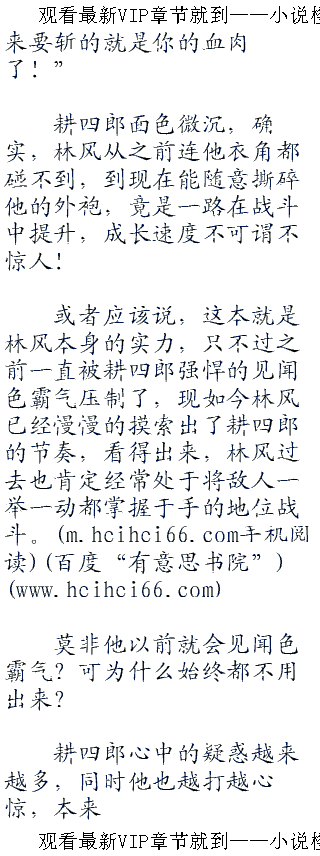 观看最新VIP章节就到——小说检
来要斩的就是你的血肉
了！”
耕四郎面色微沉，确
实，林风从之前连他衣角都
碰不到，到现在能随意撕碎
他的外袍，竟是一路在战斗
中提升，成长速度不可谓不
惊人！
或者应该说，这本就是
林风本身的实力，只不过之
前一直被耕四郎强悍的见闻
色霸气压制了，现如今林风
已经慢慢的摸索出了耕四郎
的节奏，看得出来，林风过
去也肯定经常处于将敌人一
举一动都掌握于手的地位战
斗。(m.hcihci66.com手机阅
读)(百度“有意思书院”)
(www.hcihci66.com)
莫非他以前就会见闻色
霸气？可为什么始终都不用
出来？
耕四郎心中的疑惑越来
越多，同时他也越打越心
惊，本来
观看最新VIP章节就到——小说检